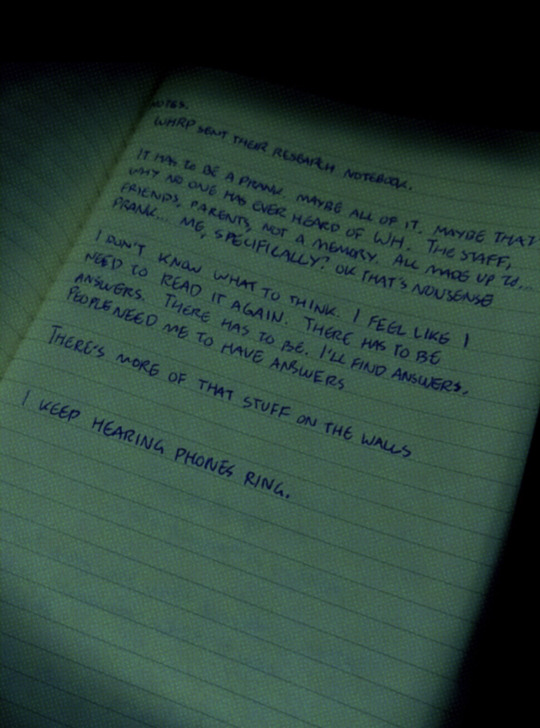 NOTES.
WHRP SENT THEIR RESEARCH NOTEBOOK.
IT HAS TO BE A PRANK. MAYBE ALL OF IT. MAYBE THAT
WHY NO ONE HAS EVER HEARD OF WH. THE STAFF,
FRIENDS, PARENTS, NOT A MEMORY. ALL MADE UP TO...
PRANK... ME, SPECIFICALLY? OK THAT'S NOUSENSE
I DON'T KNOW WHAT TO THINK. I FEEL LIKE I
NEED TO READ IT AGAIN. THERE HAS TO BE
ANSWERS. THERE HAS TO BE. I'LL FIND ANSWERS.
PEOPLE NEED ME TO HAVE ANSWERS
THERE'S MORE OF THAT STUFF ON THE WALLS
I KEEP HEARING PHONES RING.